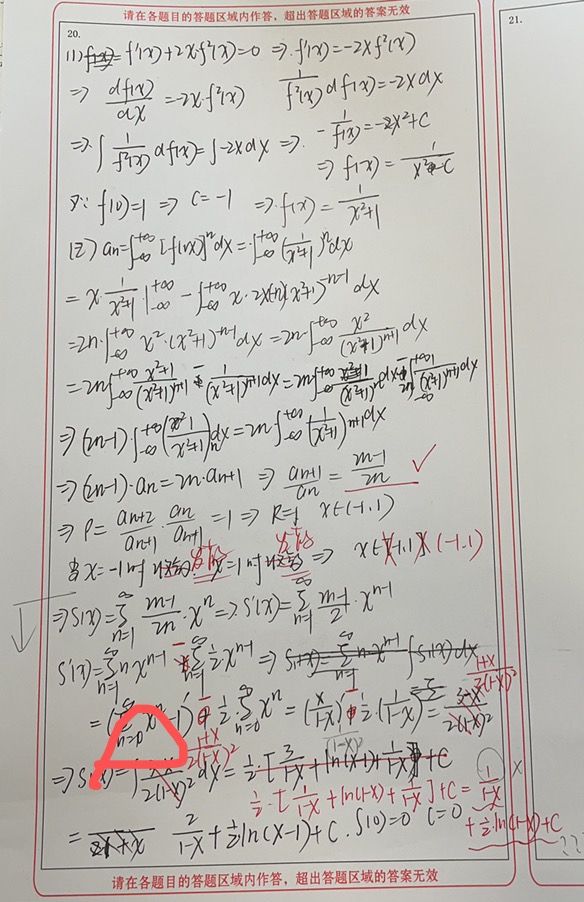 请在各题目的答题区域内作答，超出答题区域的答案无效
20.
21.
(1) f'(x)+2x·f²(x)=0 ⇒ f'(x)=-2xf²(x)
⇒ df(x)/dx =-2x·f²(x) 1/f²(x) df(x)=-2xdx
⇒ ∫ 1/f²(x) df(x)=∫-2xdx ⇒ -1/f(x)=-2x²+C
⇒ f(x)= 1/(x²-C)
又∵ f(0)=1 ⇒ C=-1 ⇒ f(x)= 1/(x²+1)
(2) an=∫_{-∞}^{+∞} [f(x)]^n dx=∫_{-∞}^{+∞} (1/(x²+1))^n dx
=x· 1/(x²+1) |_{-∞}^{+∞} -∫_{-∞}^{+∞} x·2x(-n)(x²+1)^{-n-1} dx
=2n·∫_{-∞}^{+∞} x²·(x²+1)^{-n-1} dx=2n·∫_{-∞}^{+∞} x²/(x²+1)^{n+1} dx
=2n∫_{-∞}^{+∞} (x²+1)/(x²+1)^{n+1} - 1/(x²+1)^{n+1} dx=2n∫_{-∞}^{+∞} 1/(x²+1)^n dx-2n∫_{-∞}^{+∞} 1/(x²+1)^{n+1} dx
⇒ (2n-1)∫_{-∞}^{+∞} (1/(x²+1))^n dx=2n·∫_{-∞}^{+∞} (1/(x²+1))^{n+1} dx
⇒ (2n-1)·an=2n·an+1 ⇒ an+1/an = (2n-1)/2n ✓
⇒ P= an+2/an+1 · an/an+1 =1 ⇒ R=1 x∈(-1,1)
当x=-1时 发散 x=1时 发散 ⇒ x∈ (-1,1)
⇒ S(x)=∑_{n=1}^{∞} (2n-1)/2n ·x^n ⇒ S'(x)=∑_{n=1}^{∞} (2n-1)/2 ·x^{n-1}
S'(x)=∑_{n=1}^{∞} n·x^{n-1} - ∑_{n=1}^{∞} 1/2·x^{n-1} ⇒
=(∑_{n=0}^{∞} x^n-1)' - 1/2·∑_{n=0}^{∞} x^n =(x/(1-x))' - 1/2·(1/(1-x))= (1+x)/2(1-x)²
1/(1-x)²
⇒ S(x)=∫ (1+x)/2(1-x)² dx=
1/2·[1/(1-x)+ln(1-x)+1/(1-x)]+C = 1/(1-x) +1/2·ln(1-x)+C
= 2/(1-x)+1/2ln(x-1)+C. S(0)=0 C=0
??
请在各题目的答题区域内作答，超出答题区域的答案无效